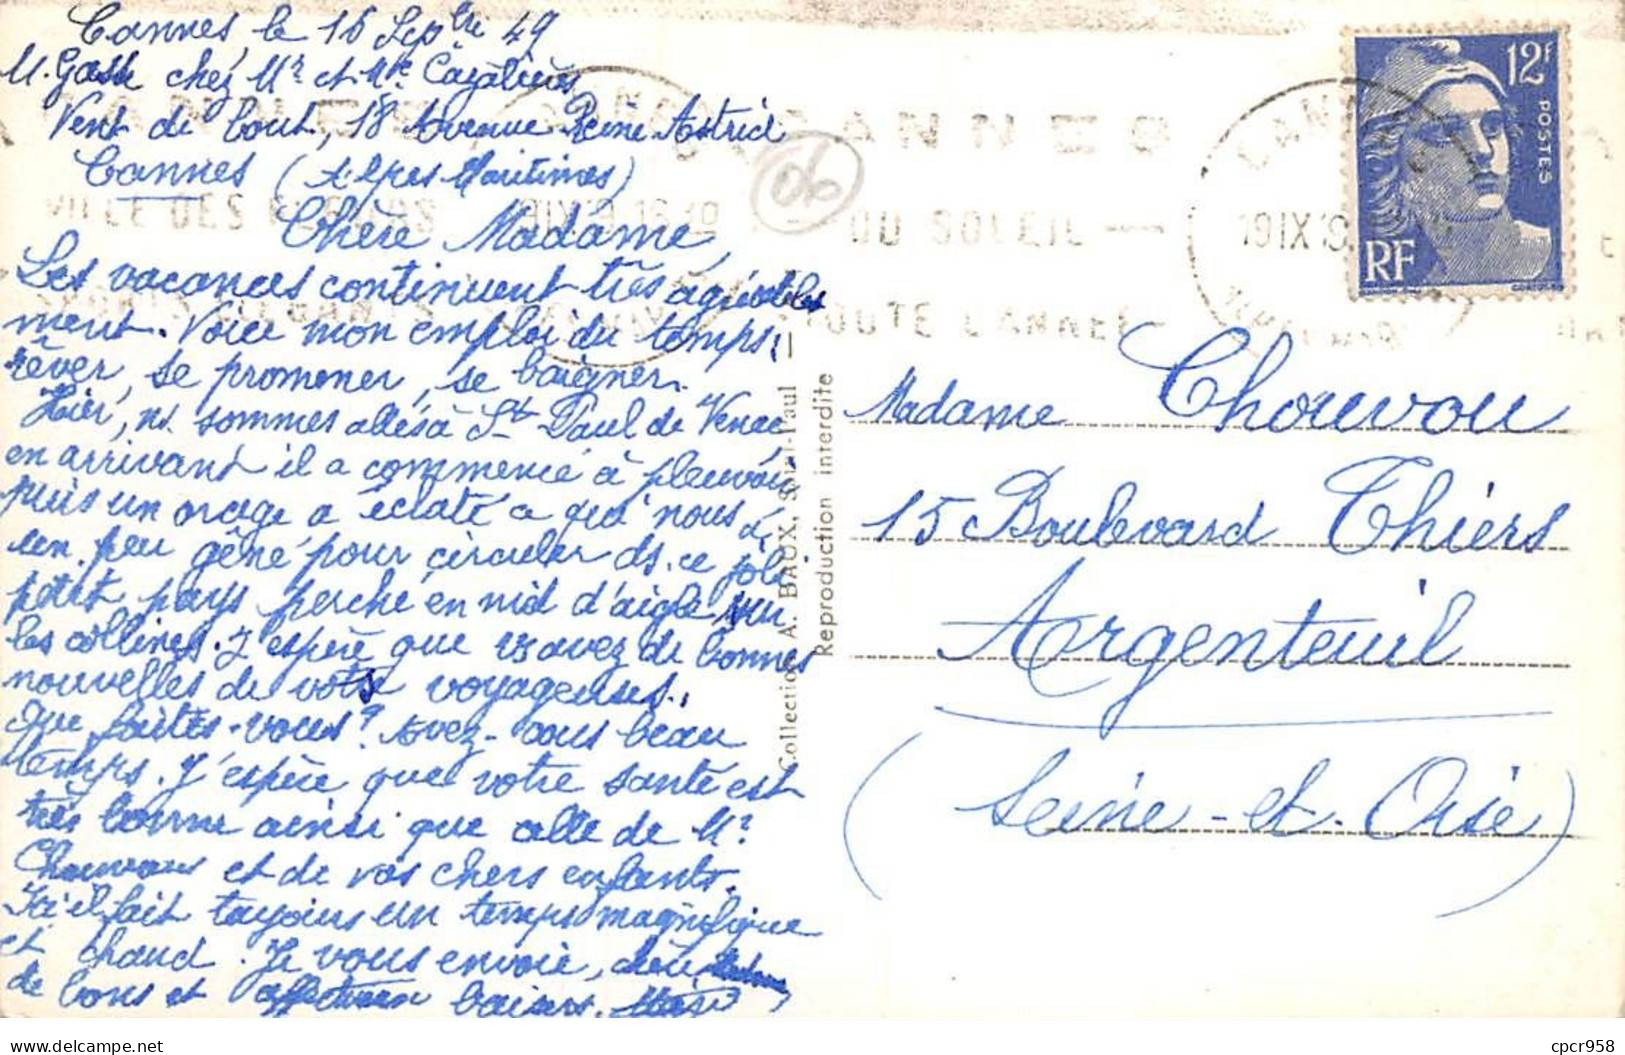 Cannes, le 16 Sepbre 49
M. Gosse chez Mr et Me
Vent de bout, 18 Avenue Reine Astrid
Cannes (Alpes Maritimes)
Chère Madame,
Les vacances continuent très agréable
ment. Voice mon emploi du temps:
rêver, se promener, se baigner.
Hier, ns. sommes allés à St Paul de Vence
en arrivant il a commencé à pleuvoir
puis un orage a éclaté ce qui nous a
un peu gêné pour circuler ds. ce joli
petit pays perché en nid d'aigle sur
les collines. J'espère que vs avez de bonnes
nouvelles de votre voyageuses.
Que faites-vous? Avez-vous beau
temps. J'espère que votre santé est
très bonne ainsi que celle de Mr
Chouvou et de vos chers enfants.
Ici il fait toujours un temps magnifique
et chaud. Je vous envoie, chère
de bons et affectueux baisers.
06
CANNES
VILLE DES FLEURS
DU SOLEIL
TOUTE L'ANNEE
CANNES
19 IX 19
12F
POSTES
RF
Collection A. BAUX, Saint-Paul
Reproduction interdite
Madame Chouvou
15 Boulevard Thiers
Argenteuil
(Seine-et-Oise)
cpcr958